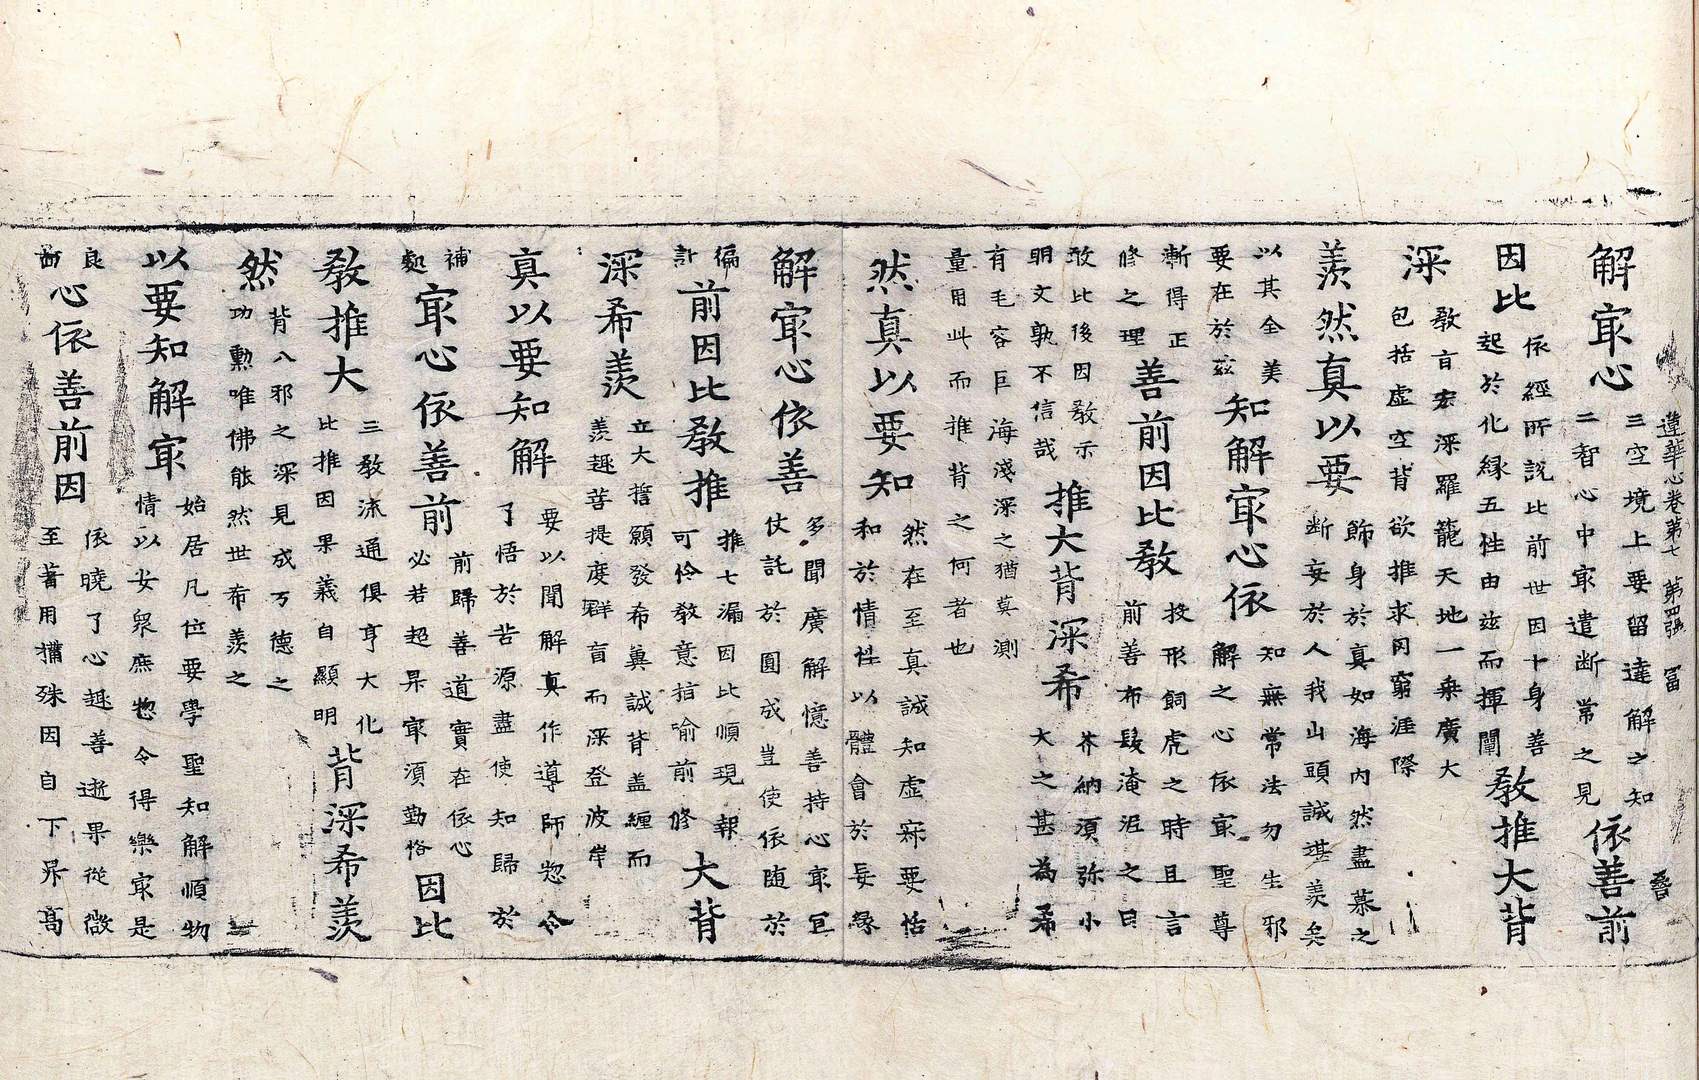 蓮華心卷第七 第四張 冨
解㝡心三空境上要留達解之知二智心中㝡遣断常之見依善前
因比依經所說比前世因十身善起於化緣五性由玆而揮闡教推大背
深教盲宏深羅籠天地一乘廣大包括虛空背欲推求罔窮涯際
羡然真以要飾身於真如海內然盡慕之断妄於人我山頭誠堪羡矣
以其全美要在於玆知解㝡心依知無常法勿生邪解之心依㝡聖尊
漸得正修之理善前因比教投形飼虎之時且言前善布髮淹泥之日
敢比後因教示明文孰不信哉推大背深希芥納湏弥小大之甚為希
有毛容巨海淺深之猶莫測量用此而推背之何者也
然真以要知然在至真誠知虛寂要恬和於情性以體會於妄緣
解㝡心依善多聞廣解憶善持心㝡宜仗託於圓成豈使依随於
徧計前因比教推推七漏因比順現報可怜教意指喻前修大背
深希羡立大誓願發希兾誠背盖纏而羡趣菩提度群盲而深登波岸
真以要知解要以聞解真作導師惣令了悟於苦源盡使知歸於
補處㝡心依善前前歸善道實在依心必若超昇㝡湏勤恪因比
教推大三教流通俱亨大化比推因果義自顯明背深希羡
然背八邪之深見成万德之功勲唯佛能然世布羡之
以要知解㝡始居凡位要學聖知解順物情以安衆庶惣令得樂㝡是
良啚心依善前因依曉了心趣善逝果從微至著用擕殊因自下昇高